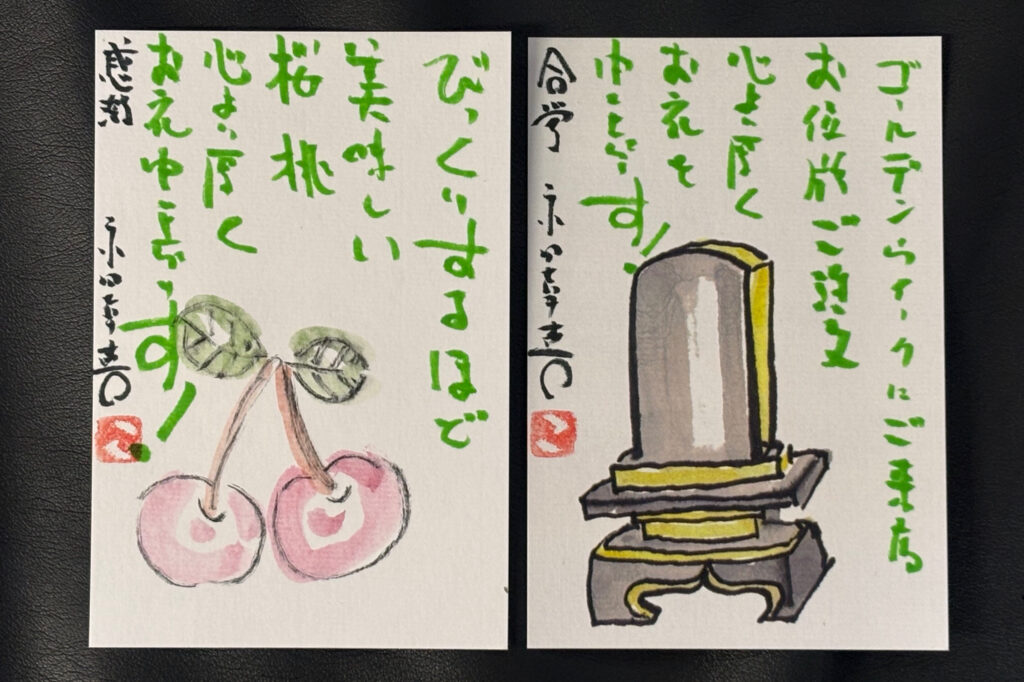 びっくりするほど
美味しい
桜桃
心より厚く
お礼申し上げます!
感謝
ゴールデンウイークにご来店
お位牌ご注文
心より厚く
お礼を
申し上げます!
合掌